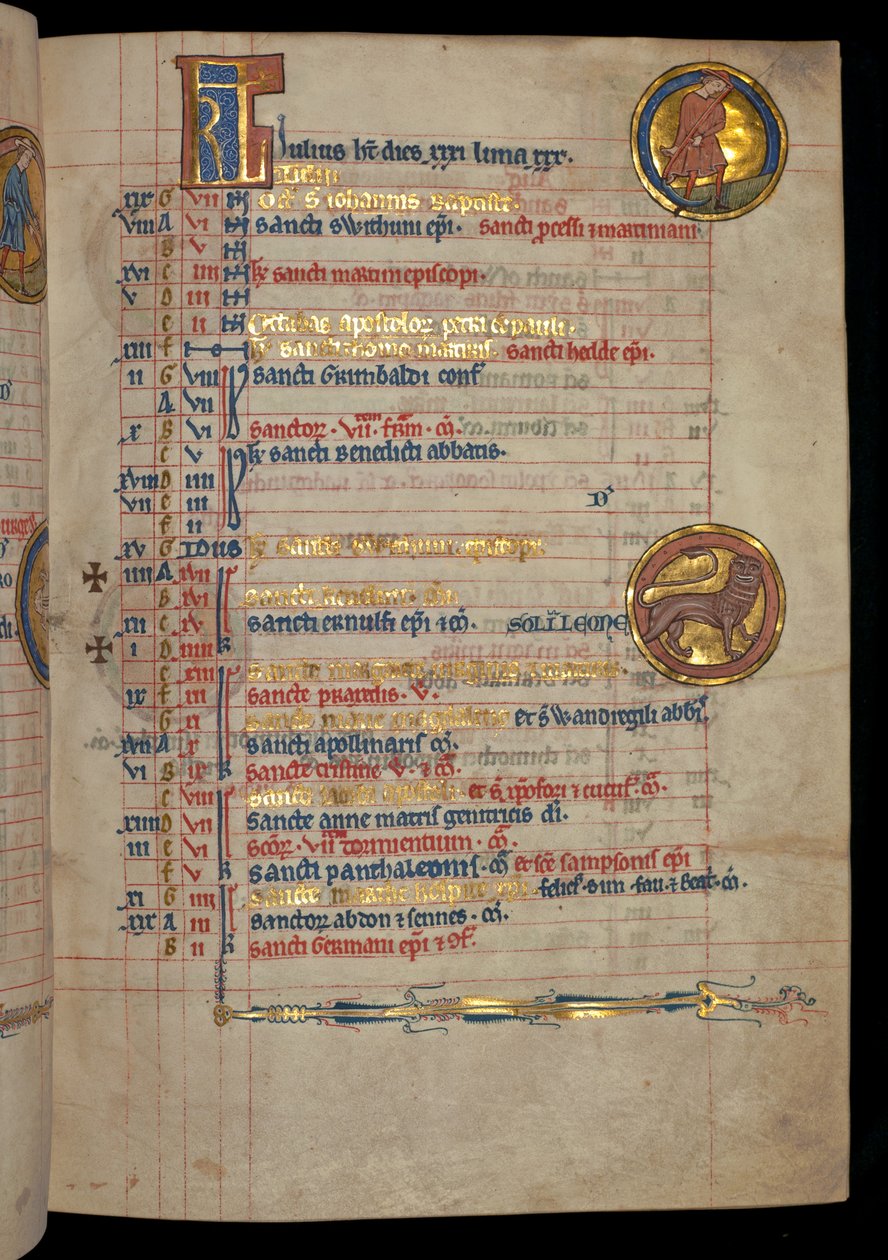 KL Iulius ht dies xxxi luna xxx.
xix G vii N Oct. S. iohannis Baptiste.
viii A vi N Sancti Swithuni epi. Sancti pcessi ⁊ martiniani
B v N
xvi c iiii N ky sancti martini episcopi.
v D iii N
e ii N Octabas apostoloꝝ petri & pauli.
xiii f N ky sancti thome martiris. Sancti hedde epi.
ii G viii Sancti Grimbaldi conf
A vii
x B vi Sanctoꝝ. vii. frm. m.
c v ky sancti Benedicti abbatis.
xviii D iiii
vii e iii D'
f ii
xv G IDUS ky Sancti Swithuni episcopi
iiii A xvii
B xvi Sancti kenelmi. m.
xii c xv Sancti ernulfi epi & m. SOL I LEONE
i D iiii k
e xiii Sancte margarete virginis ⁊ martiris.
ix f iii Sancte praxedis. v.
G xi Sancte marie magdalene et s. Wandregili abbis.
xvii A x Sancti apollinaris m.
vi B ix k Sancte cristine. v. & m.
c viii Sancti iacobi apostoli. et s. xpofori ⁊ cucuf. m.
xiiii D vii Sancte anne matris genitricis di.
iii e vi Scoꝝ. vii dormientium. m.
f v k Sancti panthaleonis. m et sce sampsonis epi
xi G iiii Sancte marthe hospite xpi. felic. sim. fau. & Beat. m.
xix A iii Sanctoꝝ abdon ⁊ sennes. m.
B ii k Sancti Germani epi ⁊ 9f.